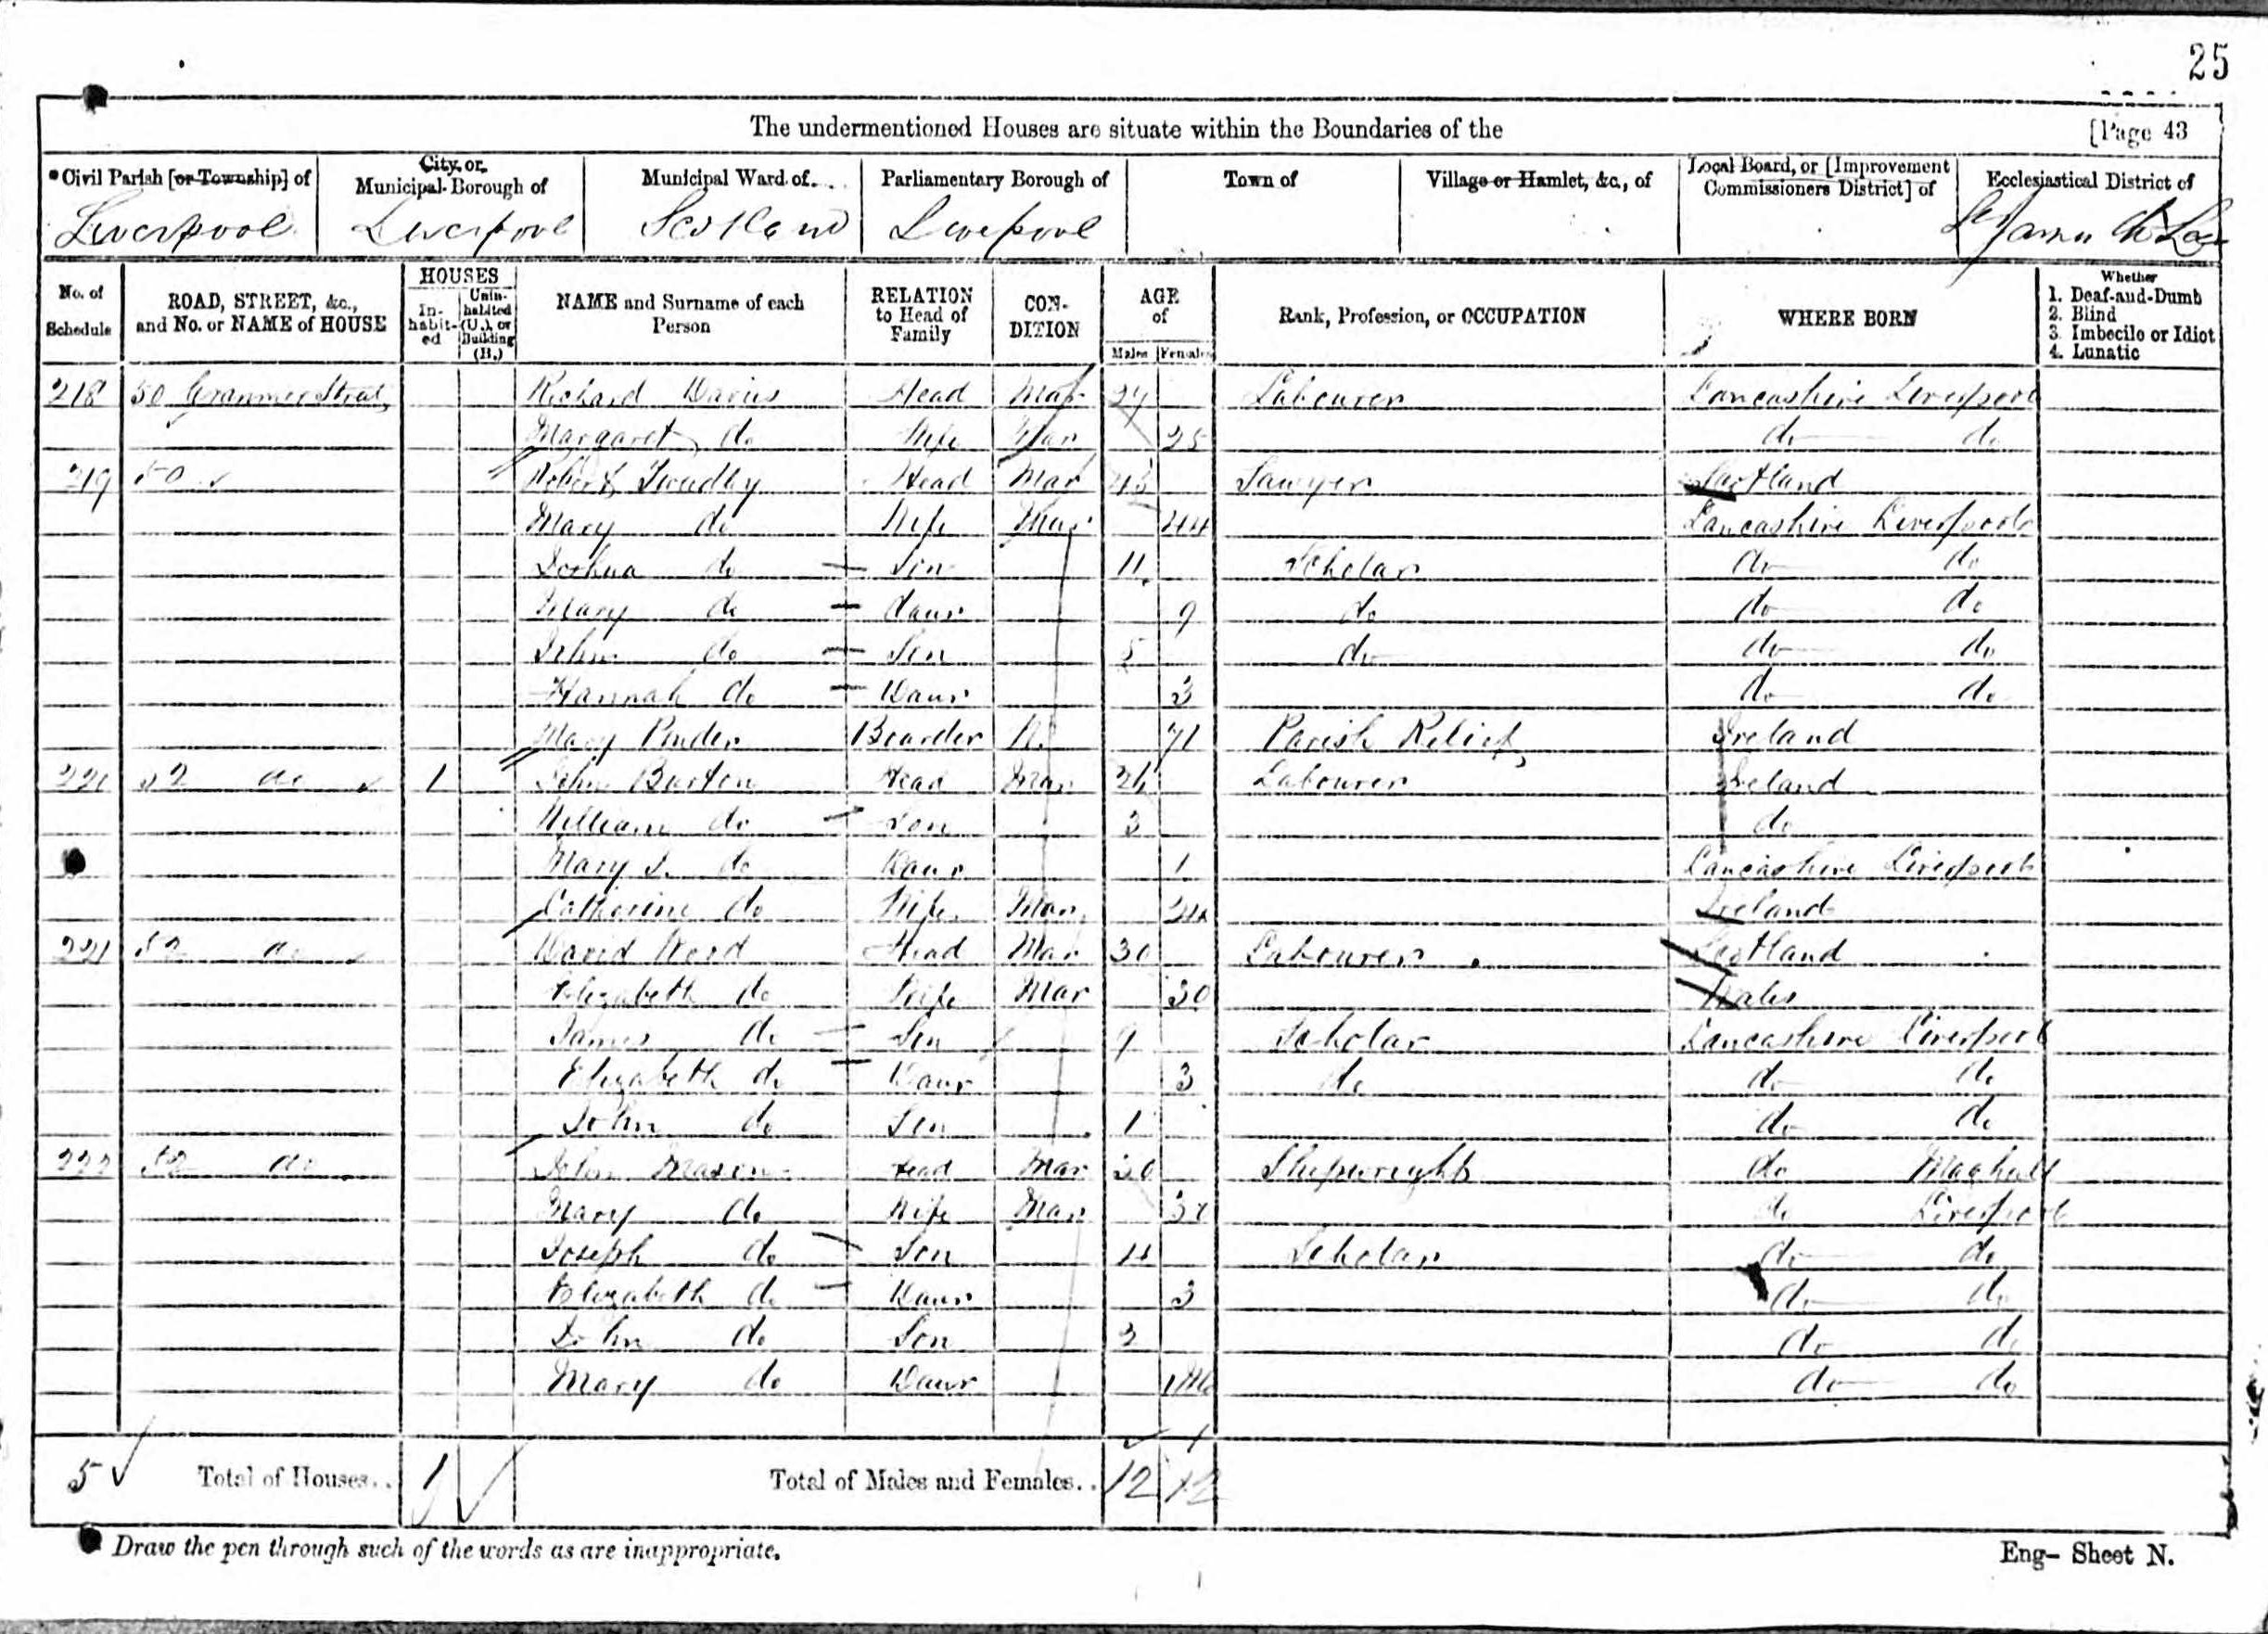 25
The undermentioned Houses are situate within the Boundaries of the [Page 43
*Civil Parish [or Township] of City or Municipal Borough of Municipal Ward of Parliamentary Borough of Town of Village or Hamlet, &c., of Local Board, or [Improvement Commissioners District] of Ecclesiastical District of
Liverpool Liverpool Scotland Liverpool St James
No. of Schedule ROAD, STREET, &c., and No. or NAME of HOUSE HOUSES Inhabited Uninhabited (U.), or Building (B.) NAME and Surname of each Person RELATION to Head of Family CONDITION AGE of Males Females Rank, Profession, or OCCUPATION WHERE BORN Whether 1. Deaf-and-Dumb 2. Blind 3. Imbecile or Idiot 4. Lunatic
218 50 Street Richard Davies Head Mar 27 Labourer Lancashire Liverpool
Margaret do Wife Mar 25 do do
219 50 Robert Head Mar Sawyer Scotland
Mary do Wife Mar 44 Lancashire Liverpool
Joshua do Son 11 Scholar do do
Mary do daur 9 do do do
John do Son 5 do do do
Hannah do Daur 3 do do
Mary Boarder 71 Parish Relief Ireland
220 52 do 1 John Burton Head Mar 26 Labourer Ireland
William do Son 3 do
Mary do Daur 1 Lancashire Liverpool
Catherine do Wife Mar 24 Ireland
221 52 do David Head Mar 30 Labourer Scotland
Elizabeth do Wife Mar 30 Wales
James do Son 9 Scholar Lancashire Liverpool
Elizabeth do Daur 3 do do do
John do Son 1 do do
222 52 do John Mason Head Mar 30 Shipwright do Maghull
Mary do Wife Mar do Liverpool
Joseph do Son Scholar do do
Elizabeth do Daur 3 do do
John do Son do do
Mary do Daur do do
5 Total of Houses.. 1 Total of Males and Females.. 12 12
Draw the pen through such of the words as are inappropriate.
Eng- Sheet N.